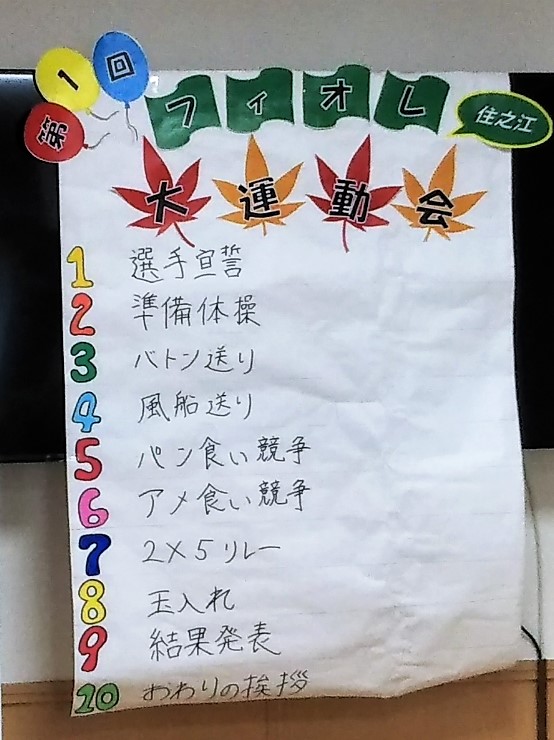 第1回
フィオレ 住之江
大運動会
1 選手宣誓
2 準備体操
3 バトン送り
4 風船送り
5 パン食い競争
6 アメ食い競争
7 2×5リレー
8 玉入れ
9 結果発表
10 おわりの挨拶